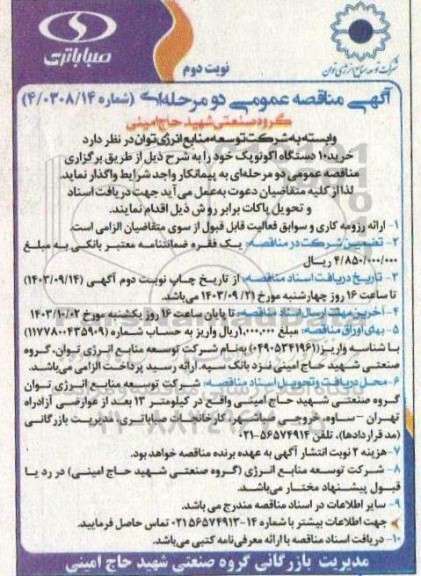 صباباتری
شرکت توسعه منابع انرژی توان
نوبت دوم
آگهی مناقصه عمومی دو مرحله‌ای (شماره ۴/۰۳۰۸/۱۴)
گروه صنعتی شهید حاج امینی
وابسته به شرکت توسعه منابع انرژی توان در نظر دارد
خرید ۱۰ دستگاه اکونویک خود را به شرح ذیل از طریق برگزاری
مناقصه عمومی دو مرحله‌ای به پیمانکار واجد شرایط واگذار نماید.
لذا از کلیه متقاضیان دعوت به‌عمل می‌آید جهت دریافت اسناد
و تحویل پاکات برابر روش ذیل اقدام نمایند.
۱- ارائه رزومه کاری و سوابق فعالیت قابل قبول از سوی متقاضیان الزامی است.
۲- تضمین شرکت در مناقصه: یک فقره ضمانتنامه معتبر بانکی به مبلغ
۴/۸۵۰/۰۰۰/۰۰۰ ریال
۳- تاریخ دریافت اسناد مناقصه: از تاریخ چاپ نوبت دوم آگهی (۱۴۰۳/۰۹/۱۴)
تا ساعت ۱۶ روز چهارشنبه مورخ ۱۴۰۳/۰۹/۲۱ می‌باشد.
۴- آخرین مهلت ارسال اسناد مناقصه: تا پایان ساعت ۱۶ روز یکشنبه مورخ ۱۴۰۳/۱۰/۰۲
۵- بهای اوراق مناقصه: مبلغ ۱,۰۰۰,۰۰۰ ریال واریز به حساب شماره (۱۱۷۷۸۰۰۴۳۵۹۰۹)
با شناسه واریز (۰۴۹۰۵۳۴۱۹۶۱) به‌نام شرکت توسعه منابع انرژی توان، گروه
صنعتی شهید حاج امینی نزد بانک سپه. ارائه رسید پرداخت الزامی می‌باشد.
۶- محل دریافت و تحویل اسناد مناقصه: شرکت توسعه منابع انرژی توان
گروه صنعتی شهید حاج امینی واقع در کیلومتر ۱۳ بعد از عوارضی آزادراه
تهران - ساوه، خروجی صباشهر، کارخانجات صباباتری، مدیریت بازرگانی
(مد قراردادها)، تلفن ۵۶۵۷۴۹۱۴-۰۲۱
۷- هزینه ۲ نوبت انتشار آگهی به عهده برنده مناقصه خواهد بود.
۸- شرکت توسعه منابع انرژی (گروه صنعتی شهید حاج امینی) در رد یا
قبول پیشنهاد مختار می‌باشد.
۹- سایر اطلاعات در اسناد مناقصه مندرج می باشد.
جهت اطلاعات بیشتر با شماره ۱۴-۵۶۵۷۴۹۱۳-۰۲۱ تماس حاصل فرمایید.
۱۰- دریافت اسناد مناقصه با ارائه معرفی‌نامه کتبی می‌باشد.
مدیریت بازرگانی گروه صنعتی شهید حاج امینی